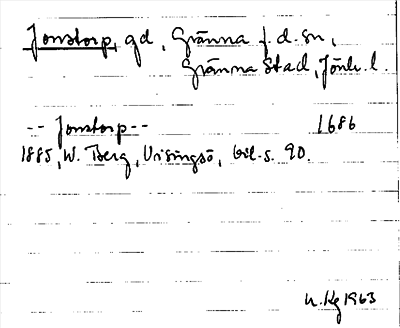 Jonstorp, gd, Gränna f.d. sn,
Gränna Stad, Jönk. l.
-- Jonstorp -- 1686
1885, W. Berg, Visingsö, bil. s. 90.
1963